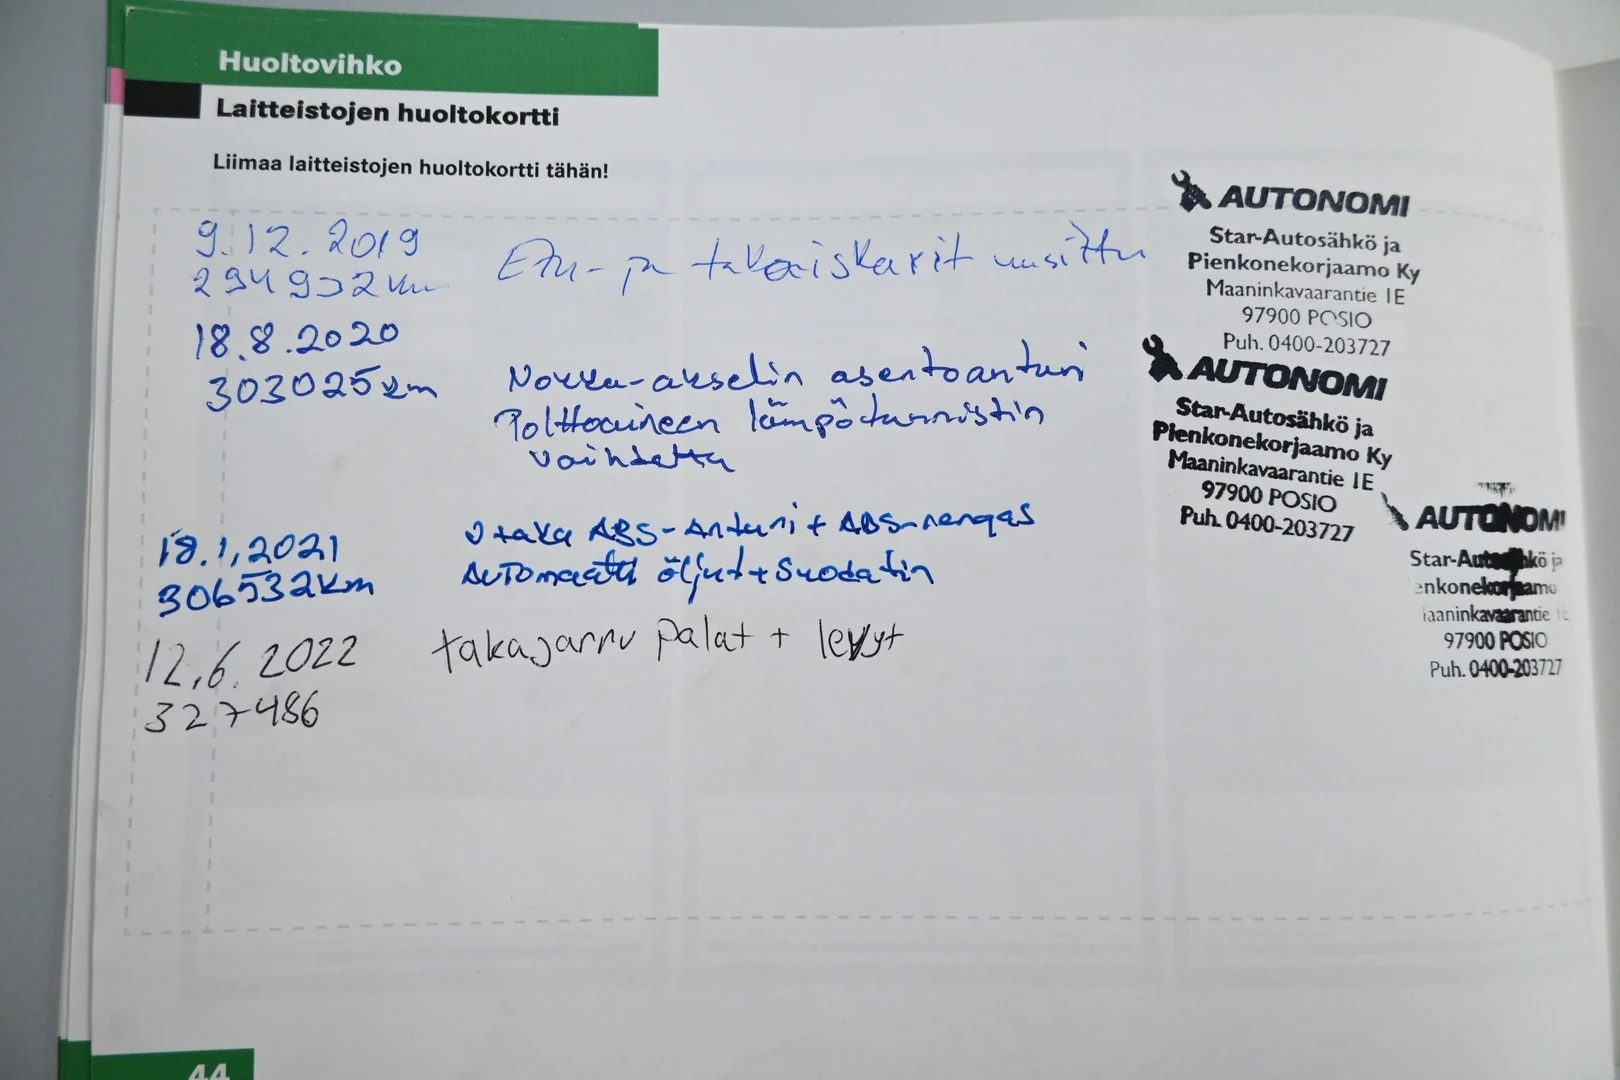 Huoltovihko
Laitteistojen huoltokortti
Liimaa laitteistojen huoltokortti tähän!
9.12.2019
294932km
Etu- ja takaiskarit uusittu
AUTONOMI
Star-Autosähkö ja
Pienkonekorjaamo Ky
Maaninkavaarantie 1E
97900 POSIO
Puh. 0400-203727
18.8.2020
303025km
Nokka-akselin asentoanturi
Polttoaineen lämpötunnistin
vaihdettu
AUTONOMI
Star-Autosähkö ja
Pienkonekorjaamo Ky
Maaninkavaarantie 1E
97900 POSIO
Puh. 0400-203727
18.1.2021
306532km
taka ABS-Anturi + ABS-rengas
Automaatti öljyt + Suodatin
AUTONOMI
Star-Autosähkö ja
enkonekorjaamo
aaninkavaarantie 1E
97900 POSIO
Puh. 0400-203727
12.6.2022
327486
takajarru palat + levyt
44